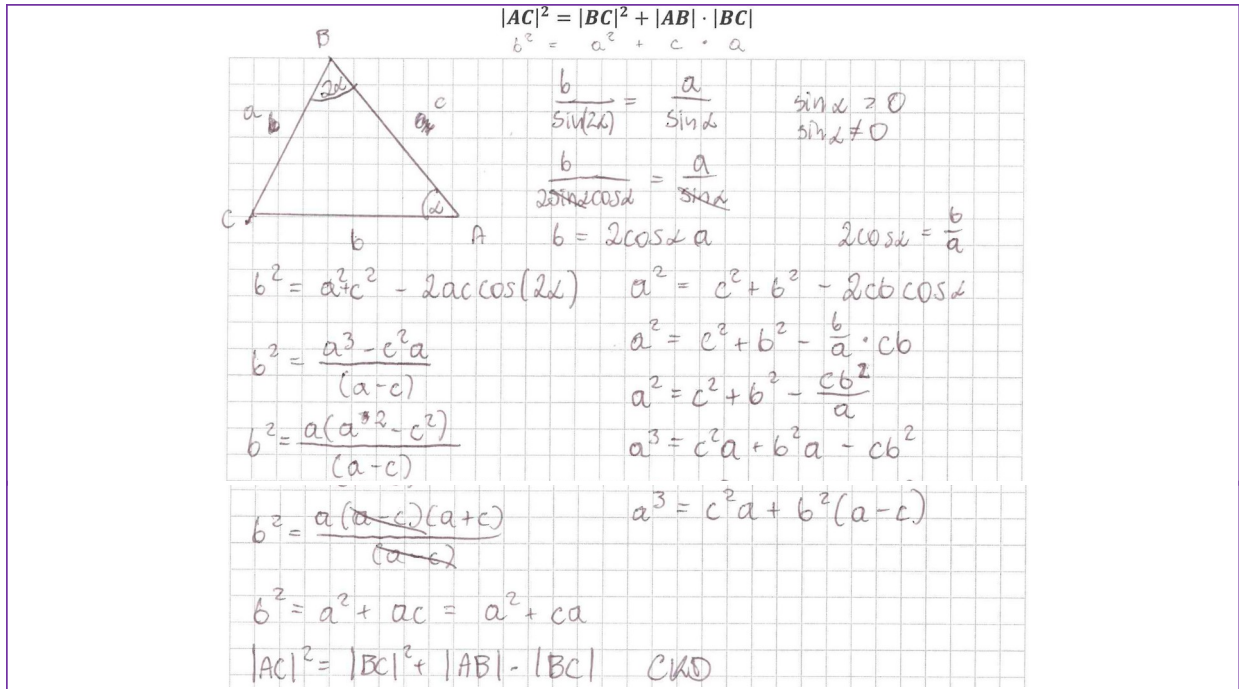 |AC|² = |BC|² + |AB| · |BC|
b² = a² + c · a
B
2α
a
c
C
α
b
A
b/sin(2α) = a/sinα
sinα > 0
sinα ≠ 0
b/2sinαcosα = a/sinα
b = 2cosα a
2cosα = b/a
b² = a²+c² - 2ac cos(2α)
a² = c² + b² - 2cb cosα
a² = c² + b² - b/a · cb
b² = a³ - c²a/(a-c)
a² = c² + b² - cb²/a
b² = a(a² - c²)/(a-c)
a³ = c²a + b²a - cb²
a³ = c²a + b²(a-c)
b² = a(a-c)(a+c)/(a-c)
b² = a² + ac = a² + ca
|AC|² = |BC|² + |AB| - |BC| CKD